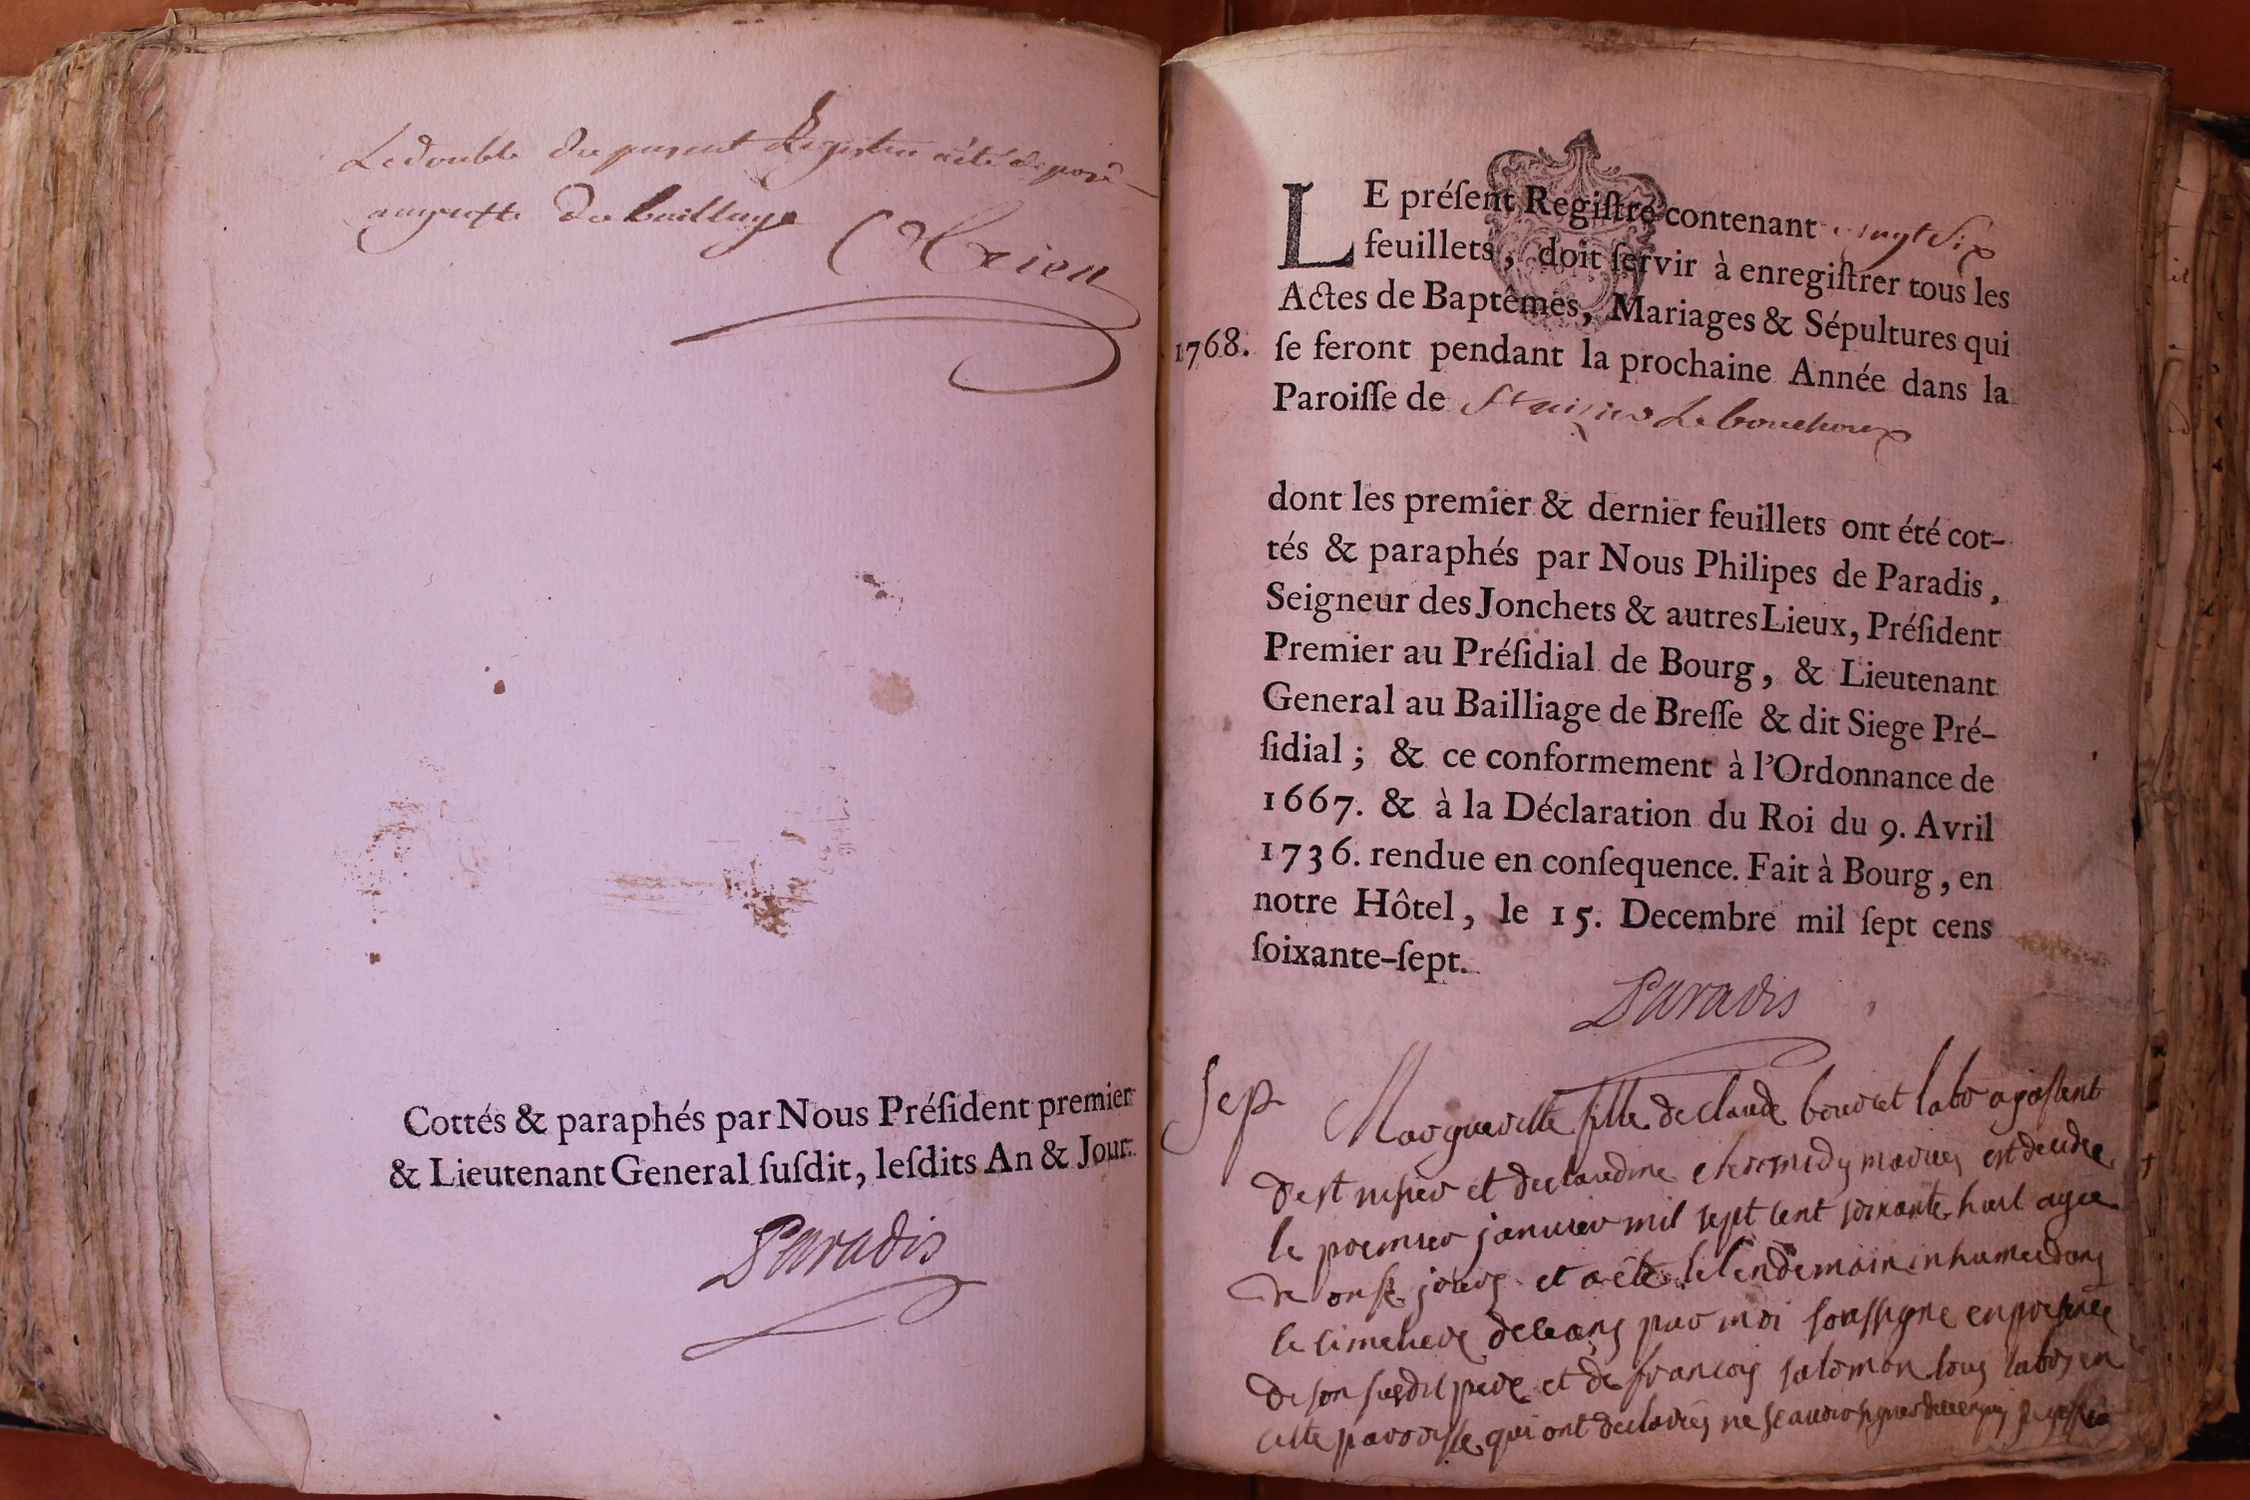 Le double du present Registre a été déposé
au greffe du bailliage
Cottés & paraphés par Nous Préſident premier
& Lieutenant General ſuſdit, leſdits An & Jour.
Paradis
LE préſent Regiſtre contenant vingt six
feuillets, doit ſervir à enregiſtrer tous les
Actes de Baptêmes, Mariages & Sépultures qui
1768. ſe feront pendant la prochaine Année dans la
Paroiſſe de St nisier Le bouchoux
dont les premier & dernier feuillets ont été cot-
tés & paraphés par Nous Philipes de Paradis,
Seigneur des Jonchets & autres Lieux, Préſident
Premier au Préſidial de Bourg, & Lieutenant
General au Bailliage de Breſſe & dit Siege Pré-
ſidial ; & ce conformement à l'Ordonnance de
1667. & à la Déclaration du Roi du 9. Avril
1736. rendue en conſequence. Fait à Bourg, en
notre Hôtel, le 15. Decembre mil ſept cens
ſoixante-ſept.
Paradis
Sep Margueritte fille de claude bouvet labr a
de st nisier et de claudine mariés est decedée
le premier janvier mil sept cent soixante huit agée
de onse jours et a été le lendemain inhumée dans
le cimetiere de ceans par moi soussigné en presence
de son susdit pere et de francois salomon tous labrs en
cette parroisse qui ont declarés ne scavoir signer de ce enquis